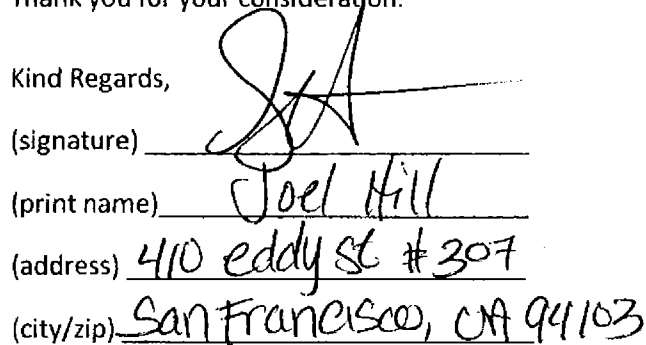 Thank you for your consideration.
Kind Regards,
(signature)
(print name) Joel Hill
(address) 410 eddy st #307
(city/zip) San Francisco, CA 94103